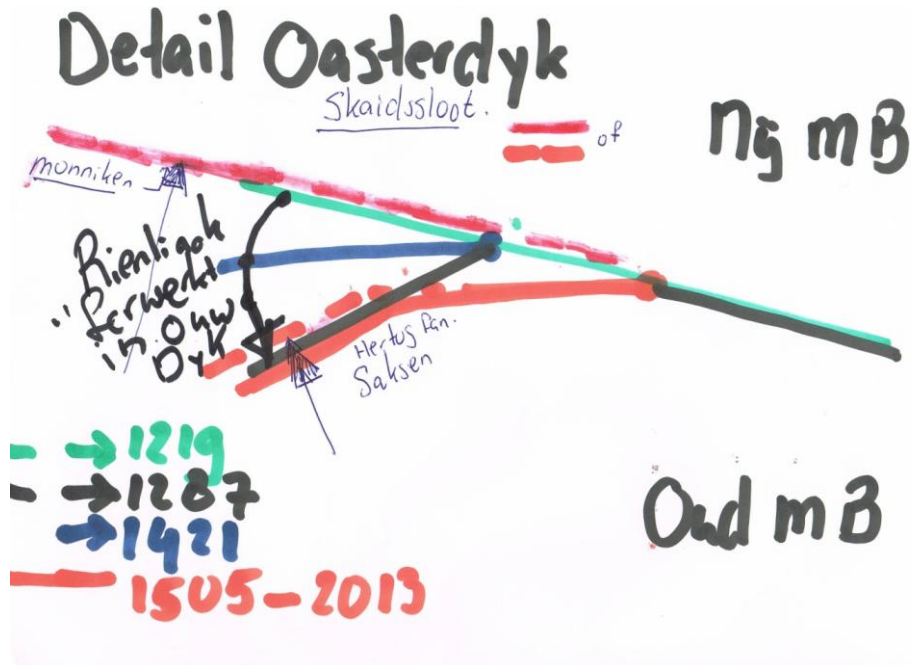 Detail Oasterdyk
Skaidssloot.
of
Nij mB
monniken
Rienligok
"ferwerkt
in Ouw
Dyk
Hertog fan.
Saksen
1219
1287
1421
1505-2013
Oud mB